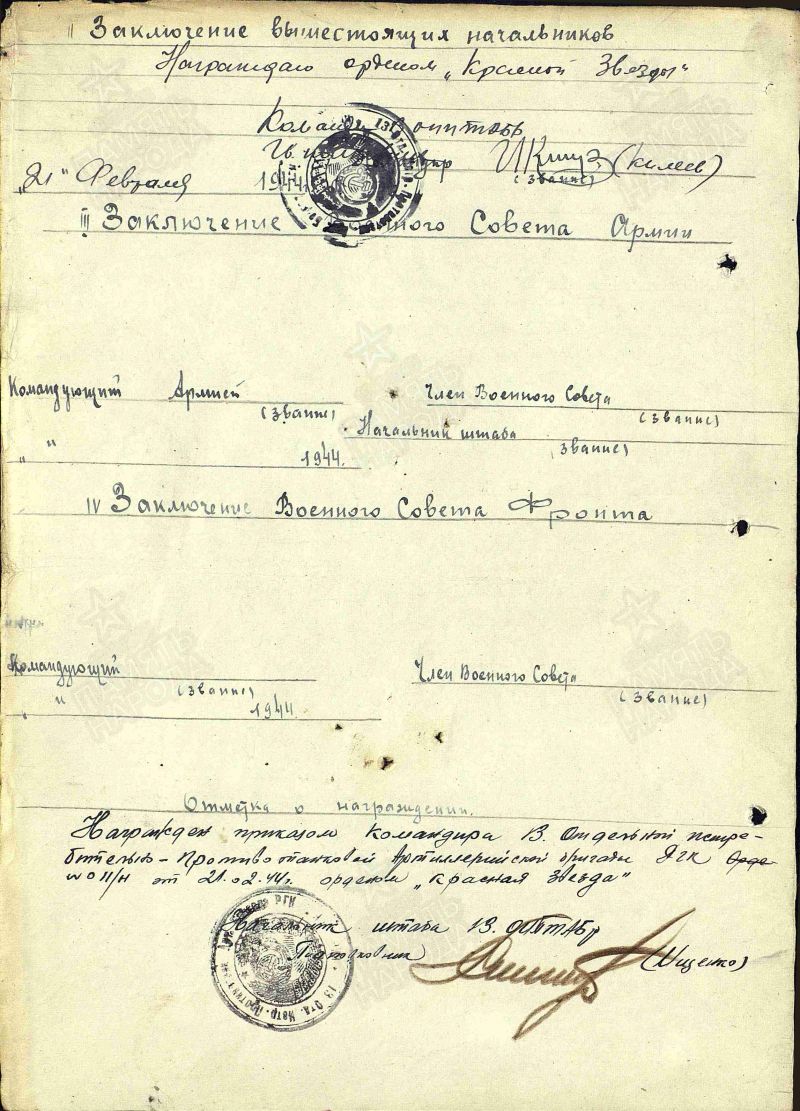 II Заключение вышестоящих начальников
Награждаю орденом „Красной Звезды"
(звание)
„21" Февраля 1944г.
III Заключение Совета Армии
Командующий Армией Член Военного Совета
(звание) (звание)
Начальник штаба
(звание)
„ " 1944.
IV Заключение Военного Совета Фронта
Командующий Член Военного Совета
(звание) (звание)
„ " 1944
Отметка о награждении.
Награжден приказом Командира 13. Отдельной истре-
бительно-Противотанковой Артиллерийской бригады РГК
№ 011/н от 21.02.44г. орденом „Красная Звезда"
Начальник штаба 13. оиптабр
Подполковник (Ищенко)